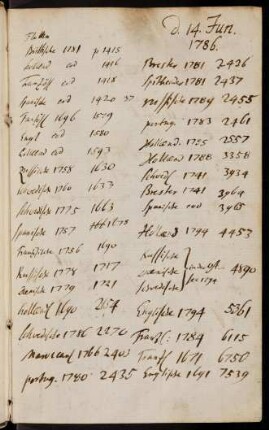 Flotten
Brittische 1781 p 1415
Holländ eod 1416
Französisch eod 1418
Spanische eod 1420 37
Französ 1696 1579
Engl eod 1580
eod 1593
Russische 1758 1630
Schwedische 1760 1633
Schwedische 1775 1663
Spanische 1757 1678
Französische 1756 1690
Russische 1778 1717
Dänische 1779 1721
Holländ 1690
Schwedische 1786 2270
Maroccan 1766 2403
portug. 1780 2435
d. 14. Jun.
1786.
Brester 1781 2426
Spithead 1781 2437
Russische 1789 2455
portug. 1783 2461
Holland. 1725 2557
Holland 1788 3358
Schwed. 1741 3934
Brester 1741 3964
Spanische eod 3965
Holland 1794 4453
Russische
Dänische
Schwedische
1794 4890
Englische 1794 5361
Französ. 1784 6115
Französ 1671 6750
Englisch 1691 7539